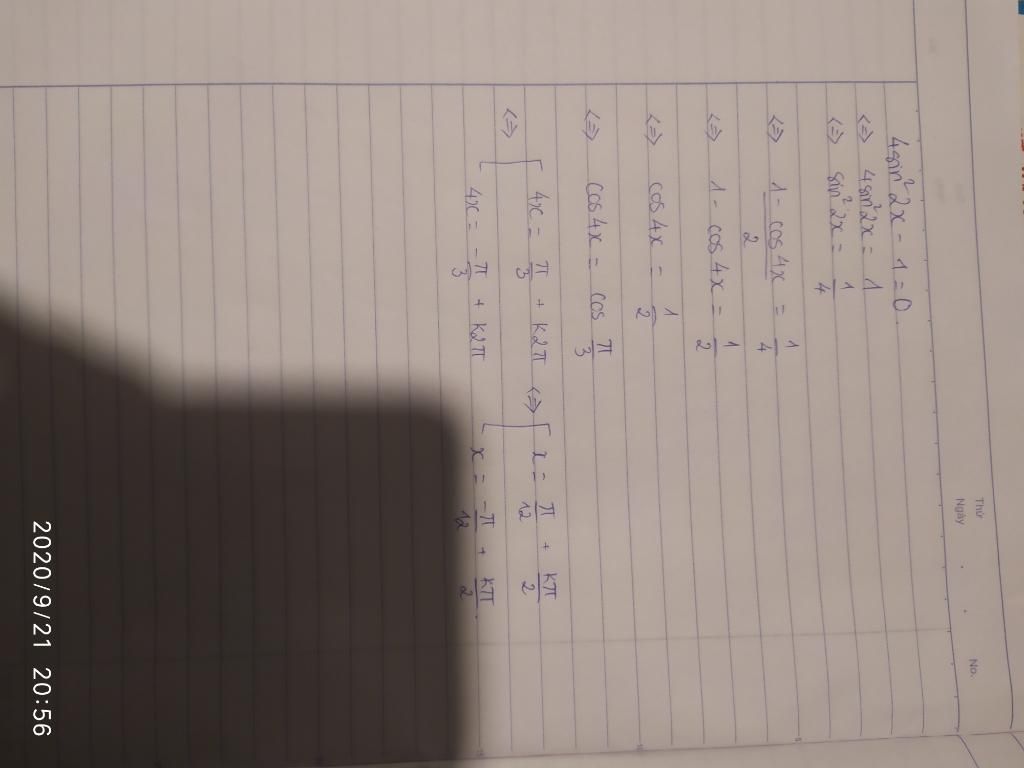 Thứ
Ngày
No.
4sin²2x - 1 = 0
<=> 4sin²2x = 1
<=> sin²2x = 1/4
<=> (1 - cos4x)/2 = 1/4
<=> 1 - cos4x = 1/2
<=> cos4x = 1/2
<=> cos4x = cos π/3
<=> [ 4x = π/3 + k2π <=> [ x = π/12 + kπ/2
4x = -π/3 + k2π x = -π/12 + kπ/2
2020/9/21 20:56